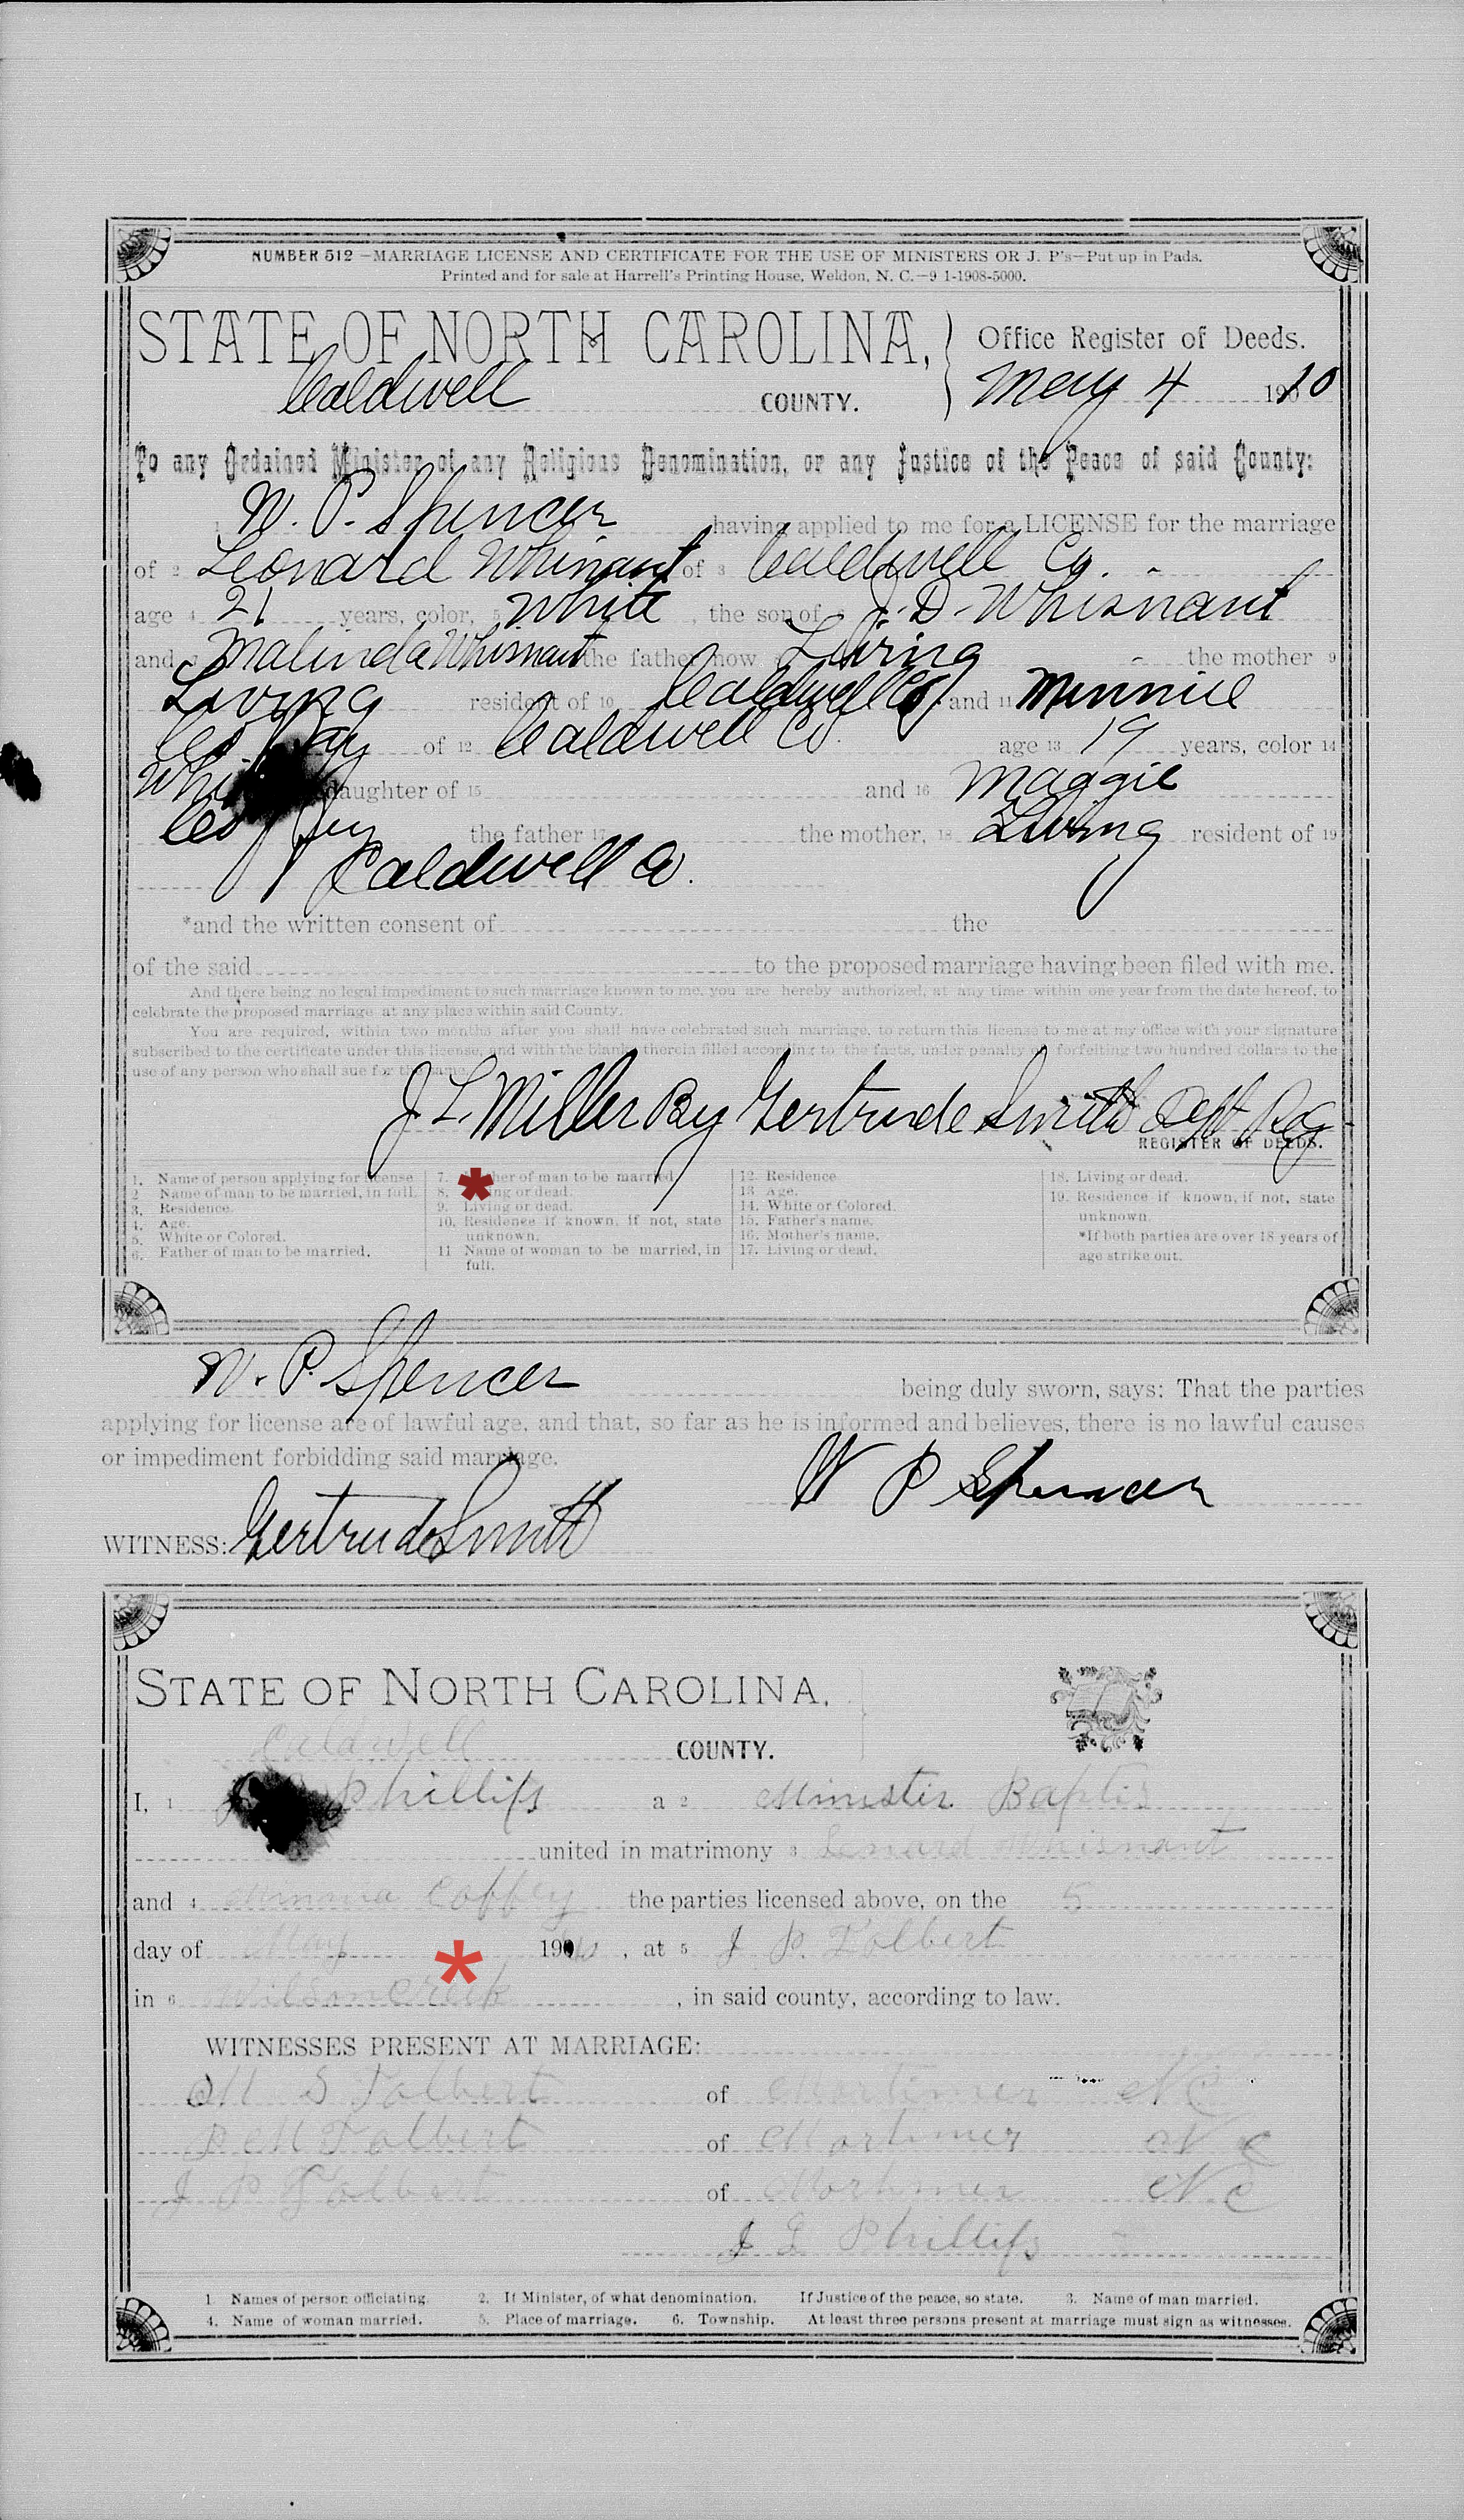 NUMBER 512 —MARRIAGE LICENSE AND CERTIFICATE FOR THE USE OF MINISTERS OR J. P's—Put up in Pads.
Printed and for sale at Harrell's Printing House, Weldon, N. C.—9 1-1908-5000.
STATE OF NORTH CAROLINA, Office Register of Deeds.
Caldwell COUNTY. May 4 1910
To any Ordained Minister of any Religious Denomination, or any Justice of the Peace of said County:
1 W. P. Spencer having applied to me for a LICENSE for the marriage
of 2 Leonard Whisnant of 3 Caldwell Co.
age 4 21 years, color, 5 White, the son of 6 J. D. Whisnant
and 7 Malinda Whisnant the father now 8 Living the mother 9
Living resident of 10 Caldwell Co. and 11 Minnie
of 12 Caldwell Co. age 13 19 years, color 14
daughter of 15 and 16 Maggie
the father 17 the mother, 18 Living resident of 19
Caldwell Co.
*and the written consent of the
of the said to the proposed marriage having been filed with me.
And there being no legal impediment to such marriage known to me, you are hereby authorized, at any time within one year from the date hereof, to
celebrate the proposed marriage at any place within said County.
You are required, within two months after you shall have celebrated such marriage, to return this license to me at my office with your signature
subscribed to the certificate under this license, and with the blanks therein filled according to the facts, under penalty of forfeiting two hundred dollars to the
use of any person who shall sue for the same.
J L. Miller By Gertrude Smith Dept Reg
REGISTER OF DEEDS.
1. Name of person applying for license
2 Name of man to be married, in full.
3. Residence.
4. Age.
5. White or Colored.
6. Father of man to be married.
7. of man to be married
8. or dead.
9. Living or dead.
10. Residence if known, if not, state
unknown.
11 Name of woman to be married, in
full.
12. Residence
13 Age.
14. White or Colored.
15. Father's name.
16. Mother's name.
17. Living or dead.
18. Living or dead.
19. Residence if known, if not, state
unknown.
*If both parties are over 18 years of
age strike out.
W. P. Spencer being duly sworn, says: That the parties
applying for license are of lawful age, and that, so far as he is informed and believes, there is no lawful causes
or impediment forbidding said marriage.
W P Spencer
WITNESS: Gertrude Smith
STATE OF NORTH CAROLINA,
Caldwell COUNTY.
I, 1 Phillips a 2 Minister Baptis
united in matrimony 3 Lenard Whisnant
and 4 Coffey the parties licensed above, on the 5
day of May 1910, at 5 J P. Tolbert
in 6 Wilson Creek, in said county, according to law.
WITNESSES PRESENT AT MARRIAGE:
M S Tolbert of Mortimer N C
M Tolbert of Mortimer N C
J P Tolbert of Mortimer N C
Phillips
1 Names of person officiating. 2. If Minister, of what denomination. If Justice of the peace, so state. 3. Name of man married.
4. Name of woman married. 5. Place of marriage. 6. Township. At least three persons present at marriage must sign as witnesses.